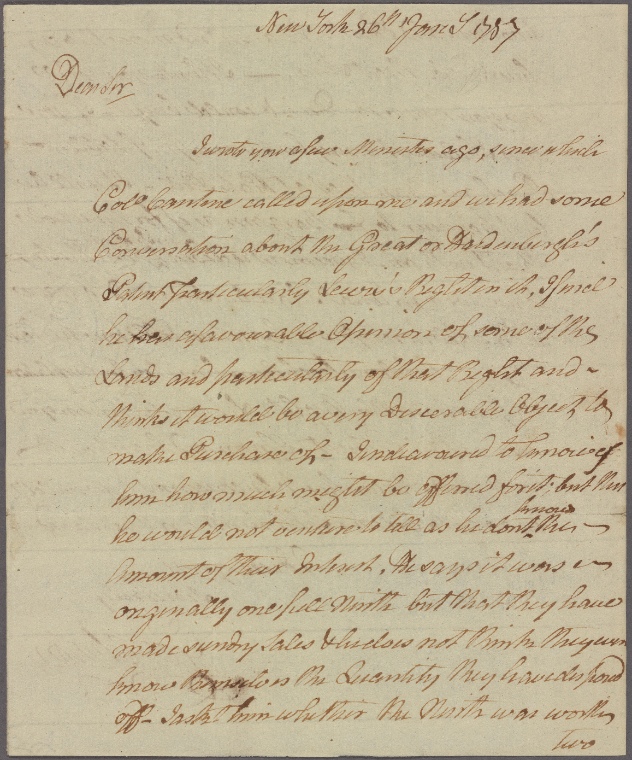 New York 26th Jany 1787
Dear Sir
I wrote you a few Minutes ago, since which
Colo Cantine called upon me and we had some
Conversation about the Great or Hardenburgh's
Patent & particularly Lewis's Right in it, I find
he has a favourable Opinion of some of the
Lands and particularly of that Right and
thinks it would be a very Desereable Object to
make Purchase of - I endeavoured to know of
him how much might be offered for it; but this
he would not venture to tell as he dont know the
Amount of their Interest. He says it was
originally one full Ninth but that they have
made sundry Sales & he does not think they even
know themselves the Quantity they have disposed
off - I askt him whether the Ninth was worth
two